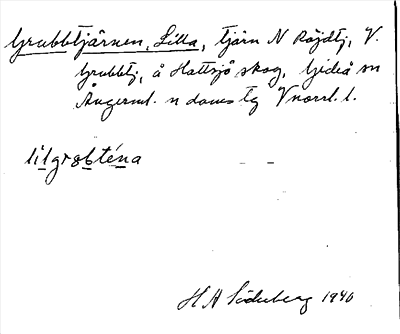 Grubbtjärnen, Lilla, tjärn N Röjdtj, V.
Grubbtj, å Hattsjö skog, Gideå sn
Ångerml. n doms tg Vnorrl. l.
lilgrɞbténa
H A Söderberg 1940